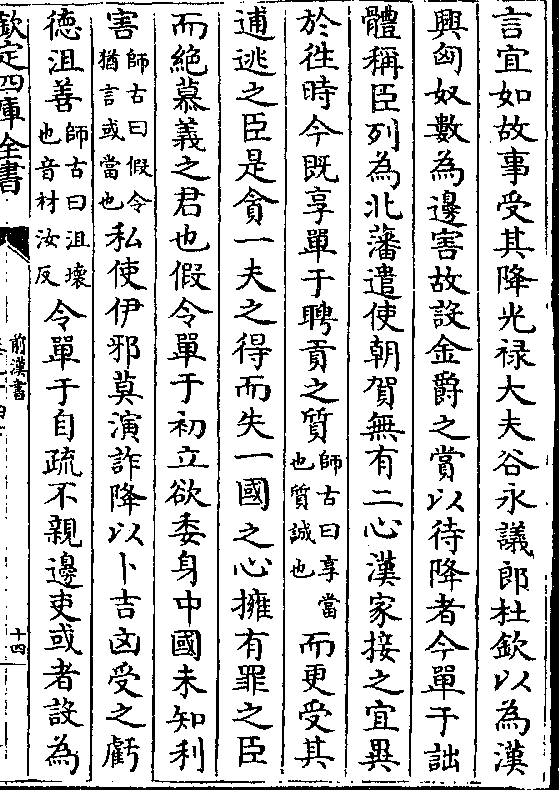 言宜如故事受其降光禄大夫谷永議郎杜欽以為漢
興匈奴數為邊害故設金爵之賞以待降者今單于詘
體稱臣列為北藩遣使朝賀無有二心漢家接之宜異
於徃時今既享單于聘貢之質師古曰享當也質誠也而更受其
逋逃之臣是貪一夫之得而失一國之心擁有罪之臣
而絶慕義之君也假令單于初立欲委身中國未知利
害師古曰假令猶言或當也私使伊邪莫演詐降以卜吉凶受之虧
徳沮善師古曰沮壊也音材汝反令單于自疏不親邊吏或者設為
欽定四庫全書
前漢書
十四